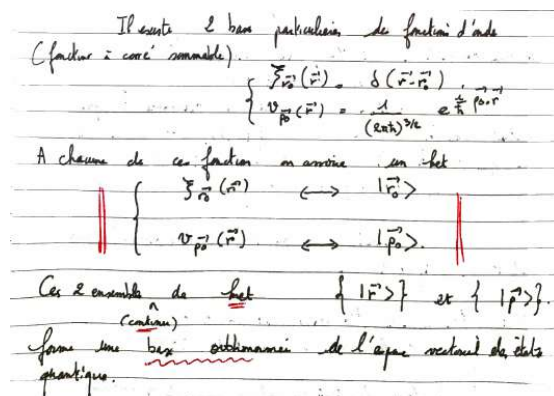 Il existe 2 bases particulières de fonctions d'onde
(fonction à carré sommable).
ξ_{\vec{r_0}}(\vec{r}) = δ(\vec{r}-\vec{r_0})
v_{\vec{p_0}}(\vec{r}) = \frac{1}{(2πħ)^{3/2}} e^{\frac{i}{ħ} \vec{p_0}.\vec{r}}
A chacune de ces fonction on associe un ket
ξ_{\vec{r_0}}(\vec{r}) ⟷ |\vec{r_0}>
v_{\vec{p_0}}(\vec{r}) ⟷ |\vec{p_0}>.
Ces 2 ensemble (continu) de ket { |\vec{r}>} et { |\vec{p}>}.
forme une base orthonormée de l'espace vectoriel des états
quantique.